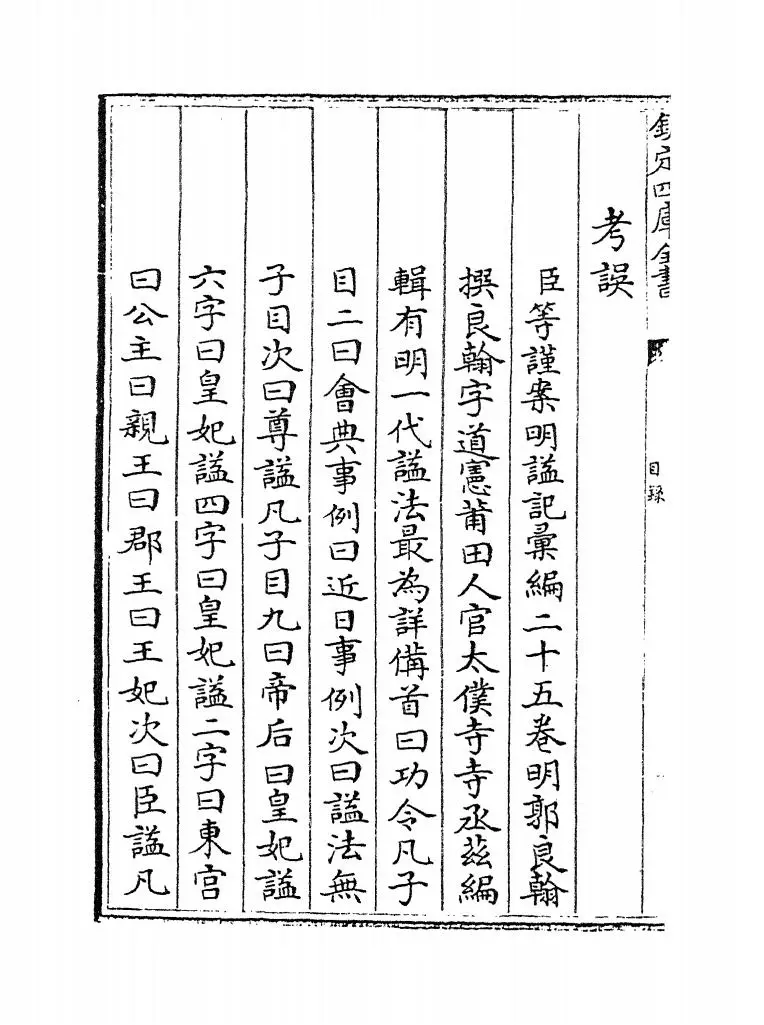 欽定四庫全書
目錄
考誤
臣等謹案明諡記彙編二十五卷明郭良翰
撰良翰字道憲莆田人官太僕寺寺丞茲編
輯有明一代諡法最為詳備首曰功令凡子
目二曰會典事例曰近日事例次曰諡法無
子目次曰尊諡凡子目九曰帝后曰皇妃諡
六字曰皇妃諡四字曰皇妃諡二字曰東宮
曰公主曰親王曰郡王曰王妃次曰臣諡凡